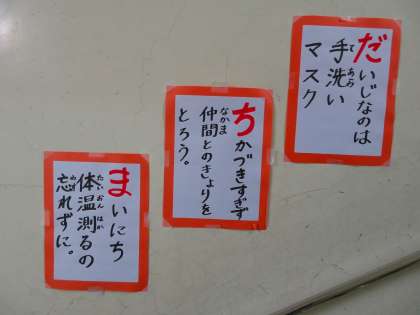 だいじなのは
手洗い
マスク
ちかづきすぎず
仲間とのきょりを
とろう。
まいにち
体温測るの
忘れずに。